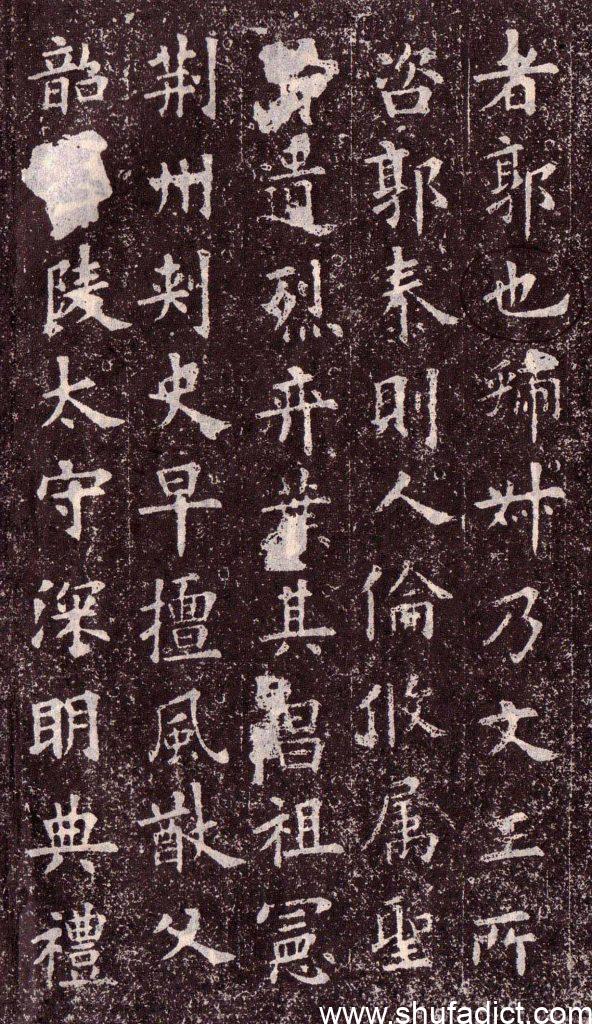 者郭也叔乃文王所
咨郭泰則人倫攸属聖
遺烈弈葉其昌祖憲
荊州刺史早擅風猷父
韶陵太守深明典禮
www.shufadict.com